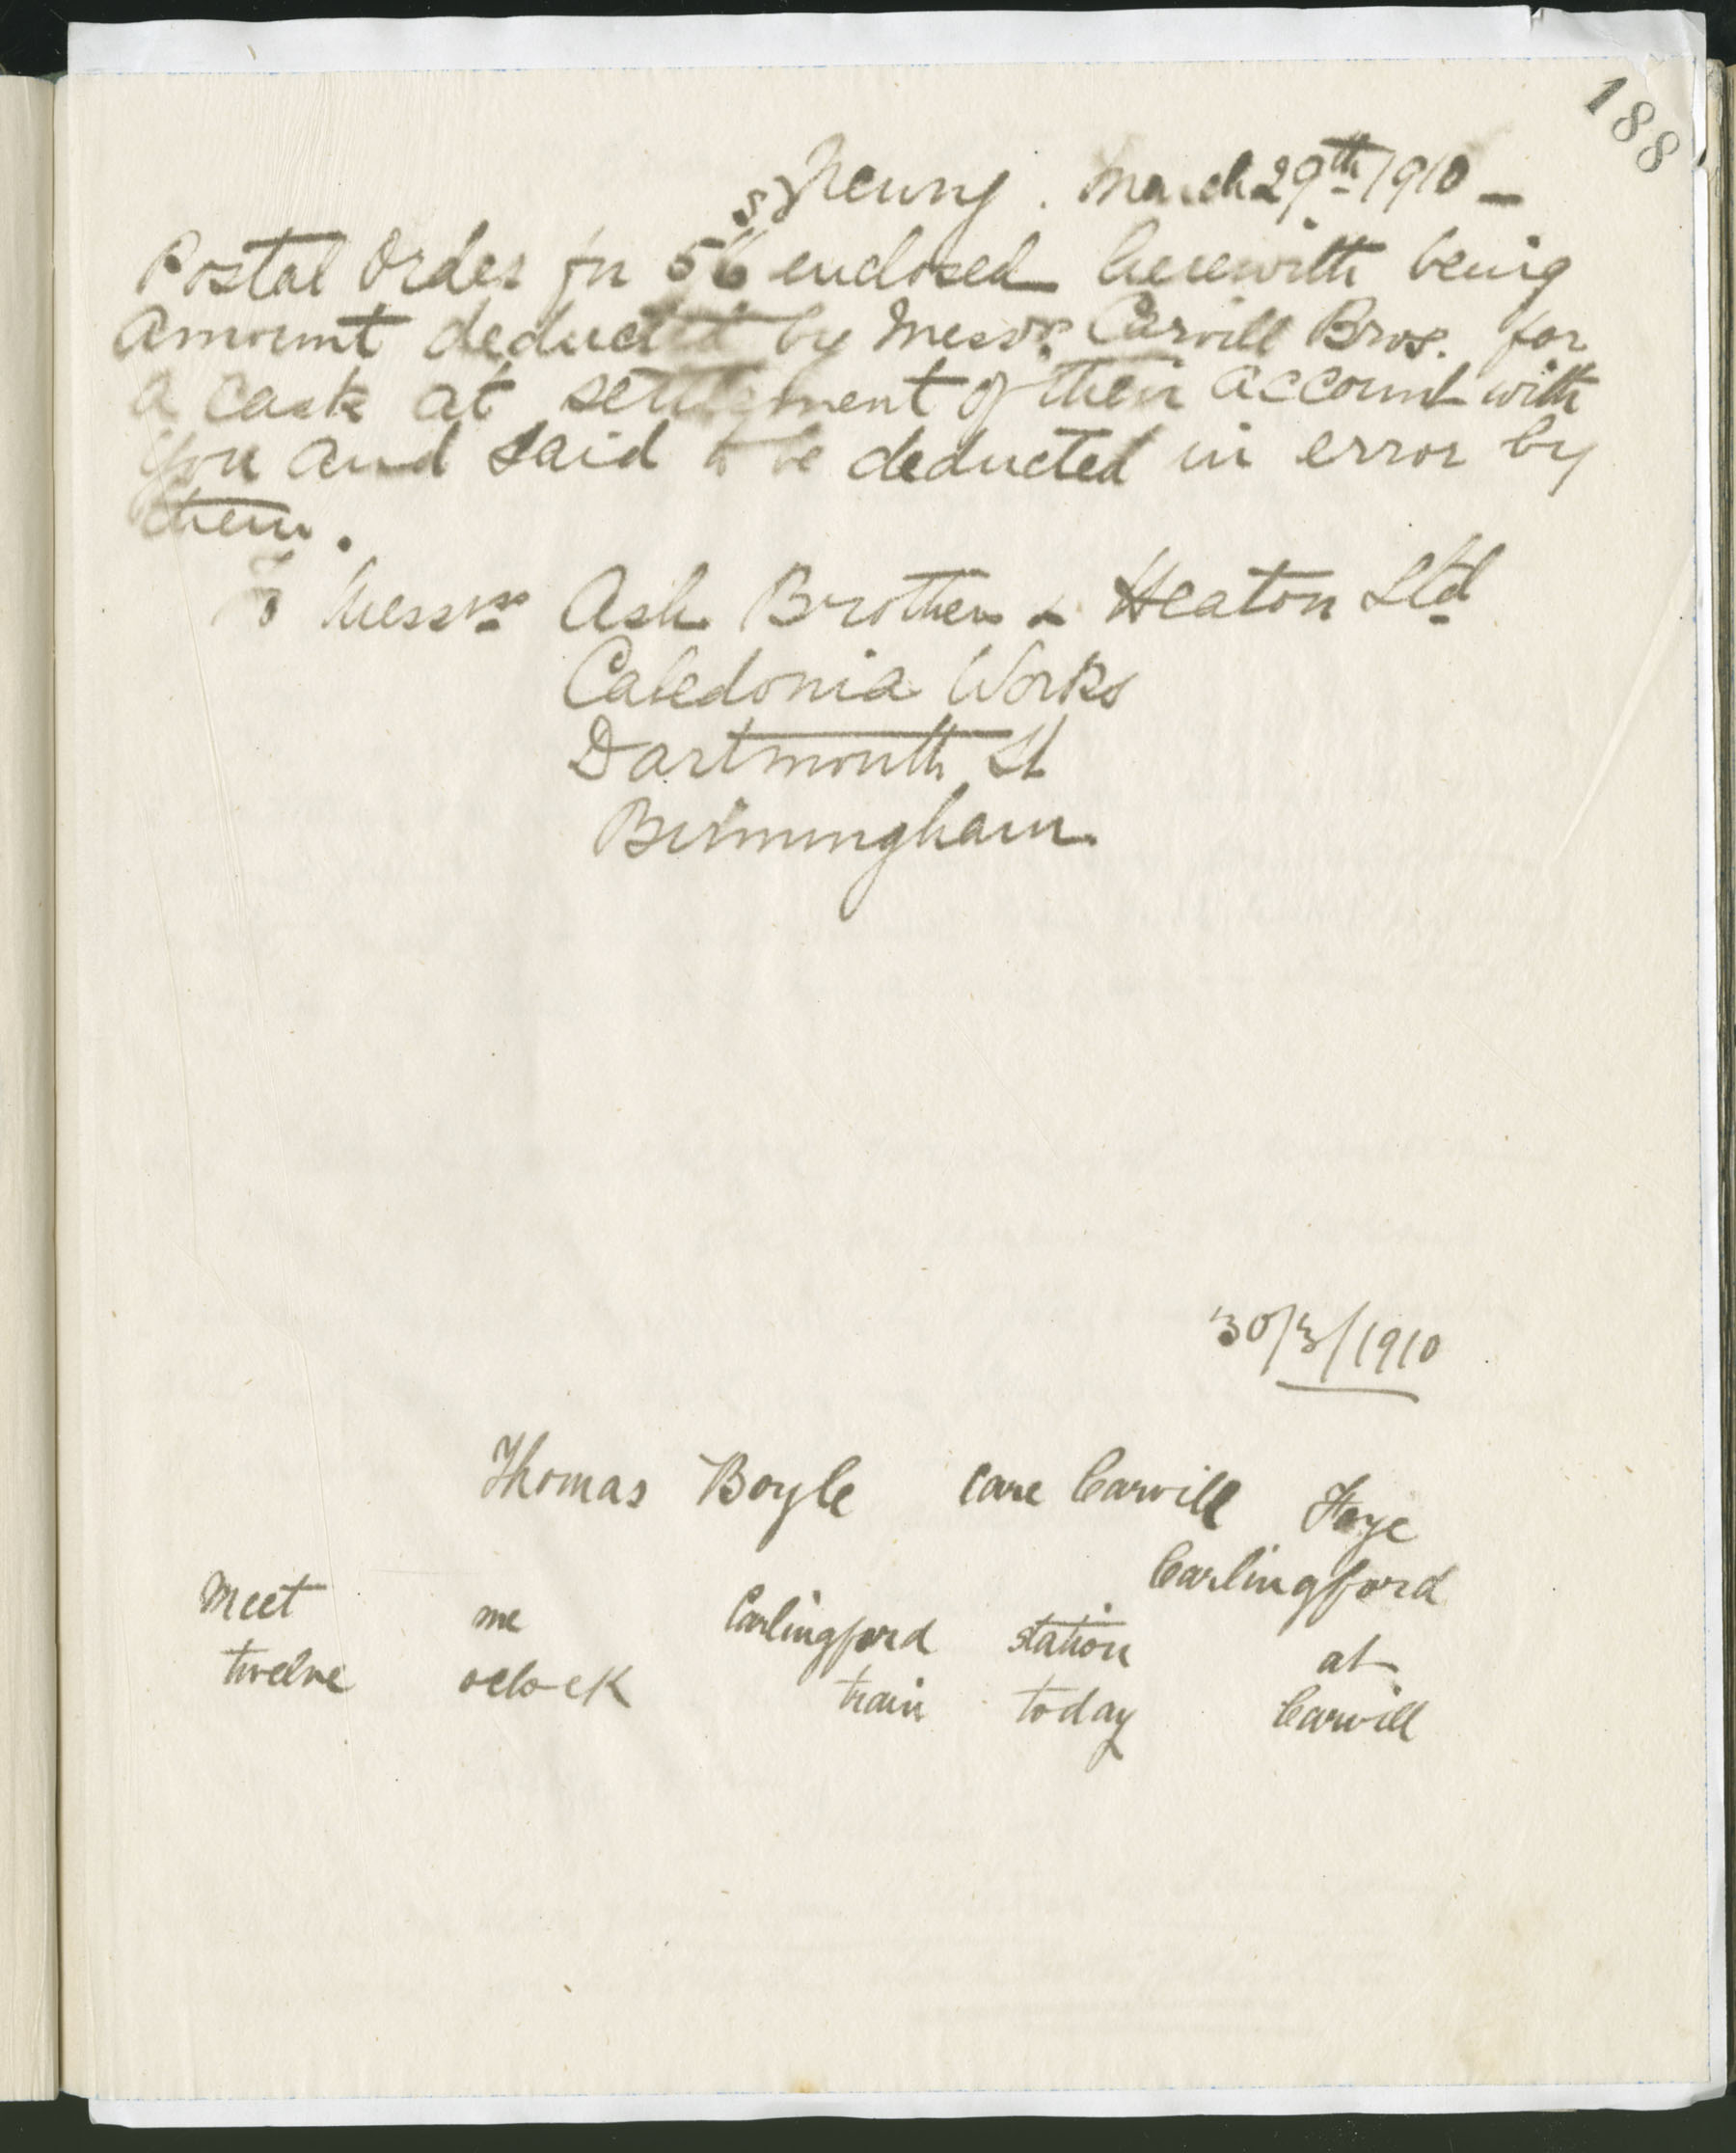 188
Newry. March 29th 1910 –
Postal Order for 5/6 enclosed herewith being
amount deducted by Messrs. Carvill Bros. for
a cask at settlement of their account with
you and said to be deducted in error by
them.
To Messrs Ash Brothers & Heaton Ltd
Caledonia Works
Dartmouth St
Birmingham
30/3/1910
Thomas Boyle care Carvill
Carlingford
Meet me Carlingford station at
twelve oclock train today Carvill